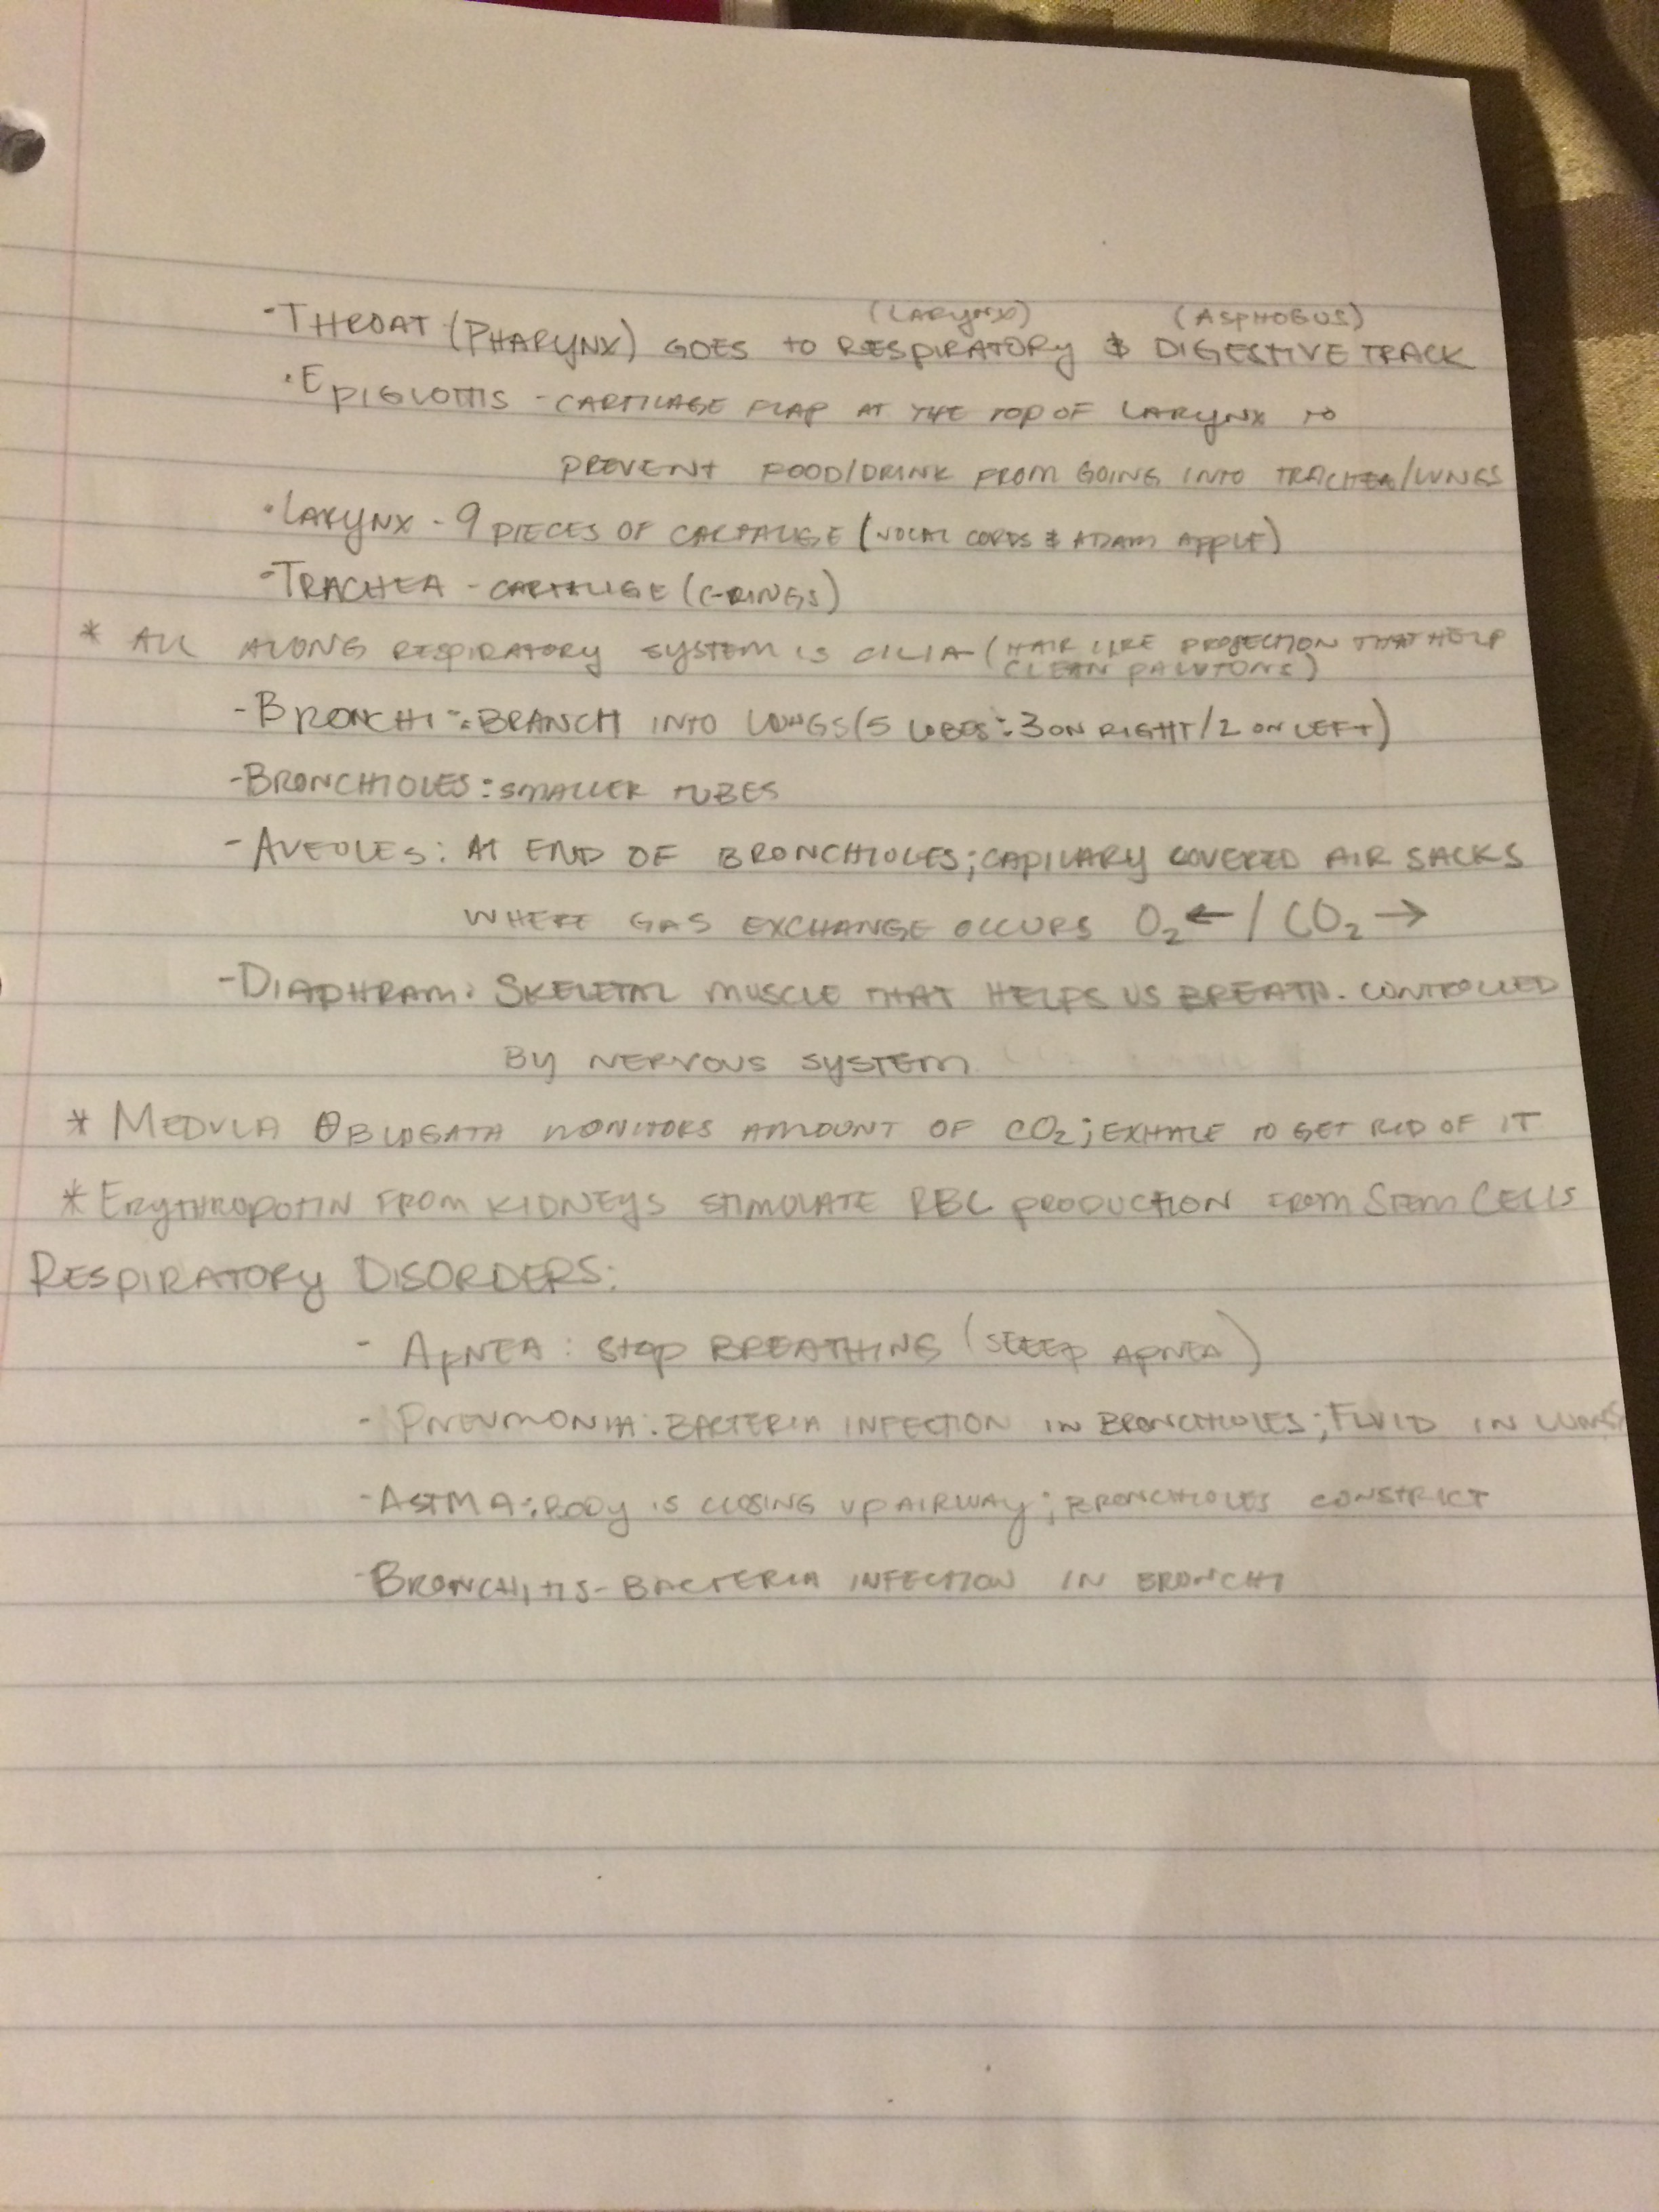 (LARYNX) (ASPHOGUS)
- THROAT (PHARYNX) GOES TO RESPIRATORY & DIGESTIVE TRACK
· EPIGLOTTIS - CARTILAGE FLAP AT THE TOP OF LARYNX TO
PREVENT FOOD/DRINK FROM GOING INTO TRACHEA/LUNGS
· LARYNX - 9 PIECES OF CARTALIGE (VOCAL CORDS & ADAM APPLE)
- TRACHEA - CARTALIGE (C-RINGS)
* ALL ALONG RESPIRATORY SYSTEM IS CILIA (HAIR LIKE PROJECTION THAT HELP
CLEAN PALUTONS)
- BRONCHI: BRANCH INTO LUNGS (5 LOBES: 3 ON RIGHT/2 ON LEFT)
- BRONCHIOLES: SMALLER TUBES
- AVEOLES: AT END OF BRONCHIOLES; CAPILARY COVERED AIR SACKS
WHERE GAS EXCHANGE OCCURS O₂ ← / CO₂ →
- DIAPHRAM: SKELETAL MUSCLE THAT HELPS US BREATH. CONTROLLED
BY NERVOUS SYSTEM
* MEDULA OBLOGATA MONITORS AMOUNT OF CO₂; EXHALE TO GET RID OF IT
* ERYTHROPOTIN FROM KIDNEYS STIMULATE RBC PRODUCTION FROM STEM CELLS
RESPIRATORY DISORDERS:
- APNEA: STOP BREATHING (SLEEP APNEA)
- PNEUMONIA: BACTERIA INFECTION IN BRONCHIOLES; FLUID IN LUNGS
- ASTMA: BODY IS CLOSING UP AIRWAY; BRONCHIOLES CONSTRICT
- BRONCHITIS - BACTERIA INFECTION IN BRONCHI